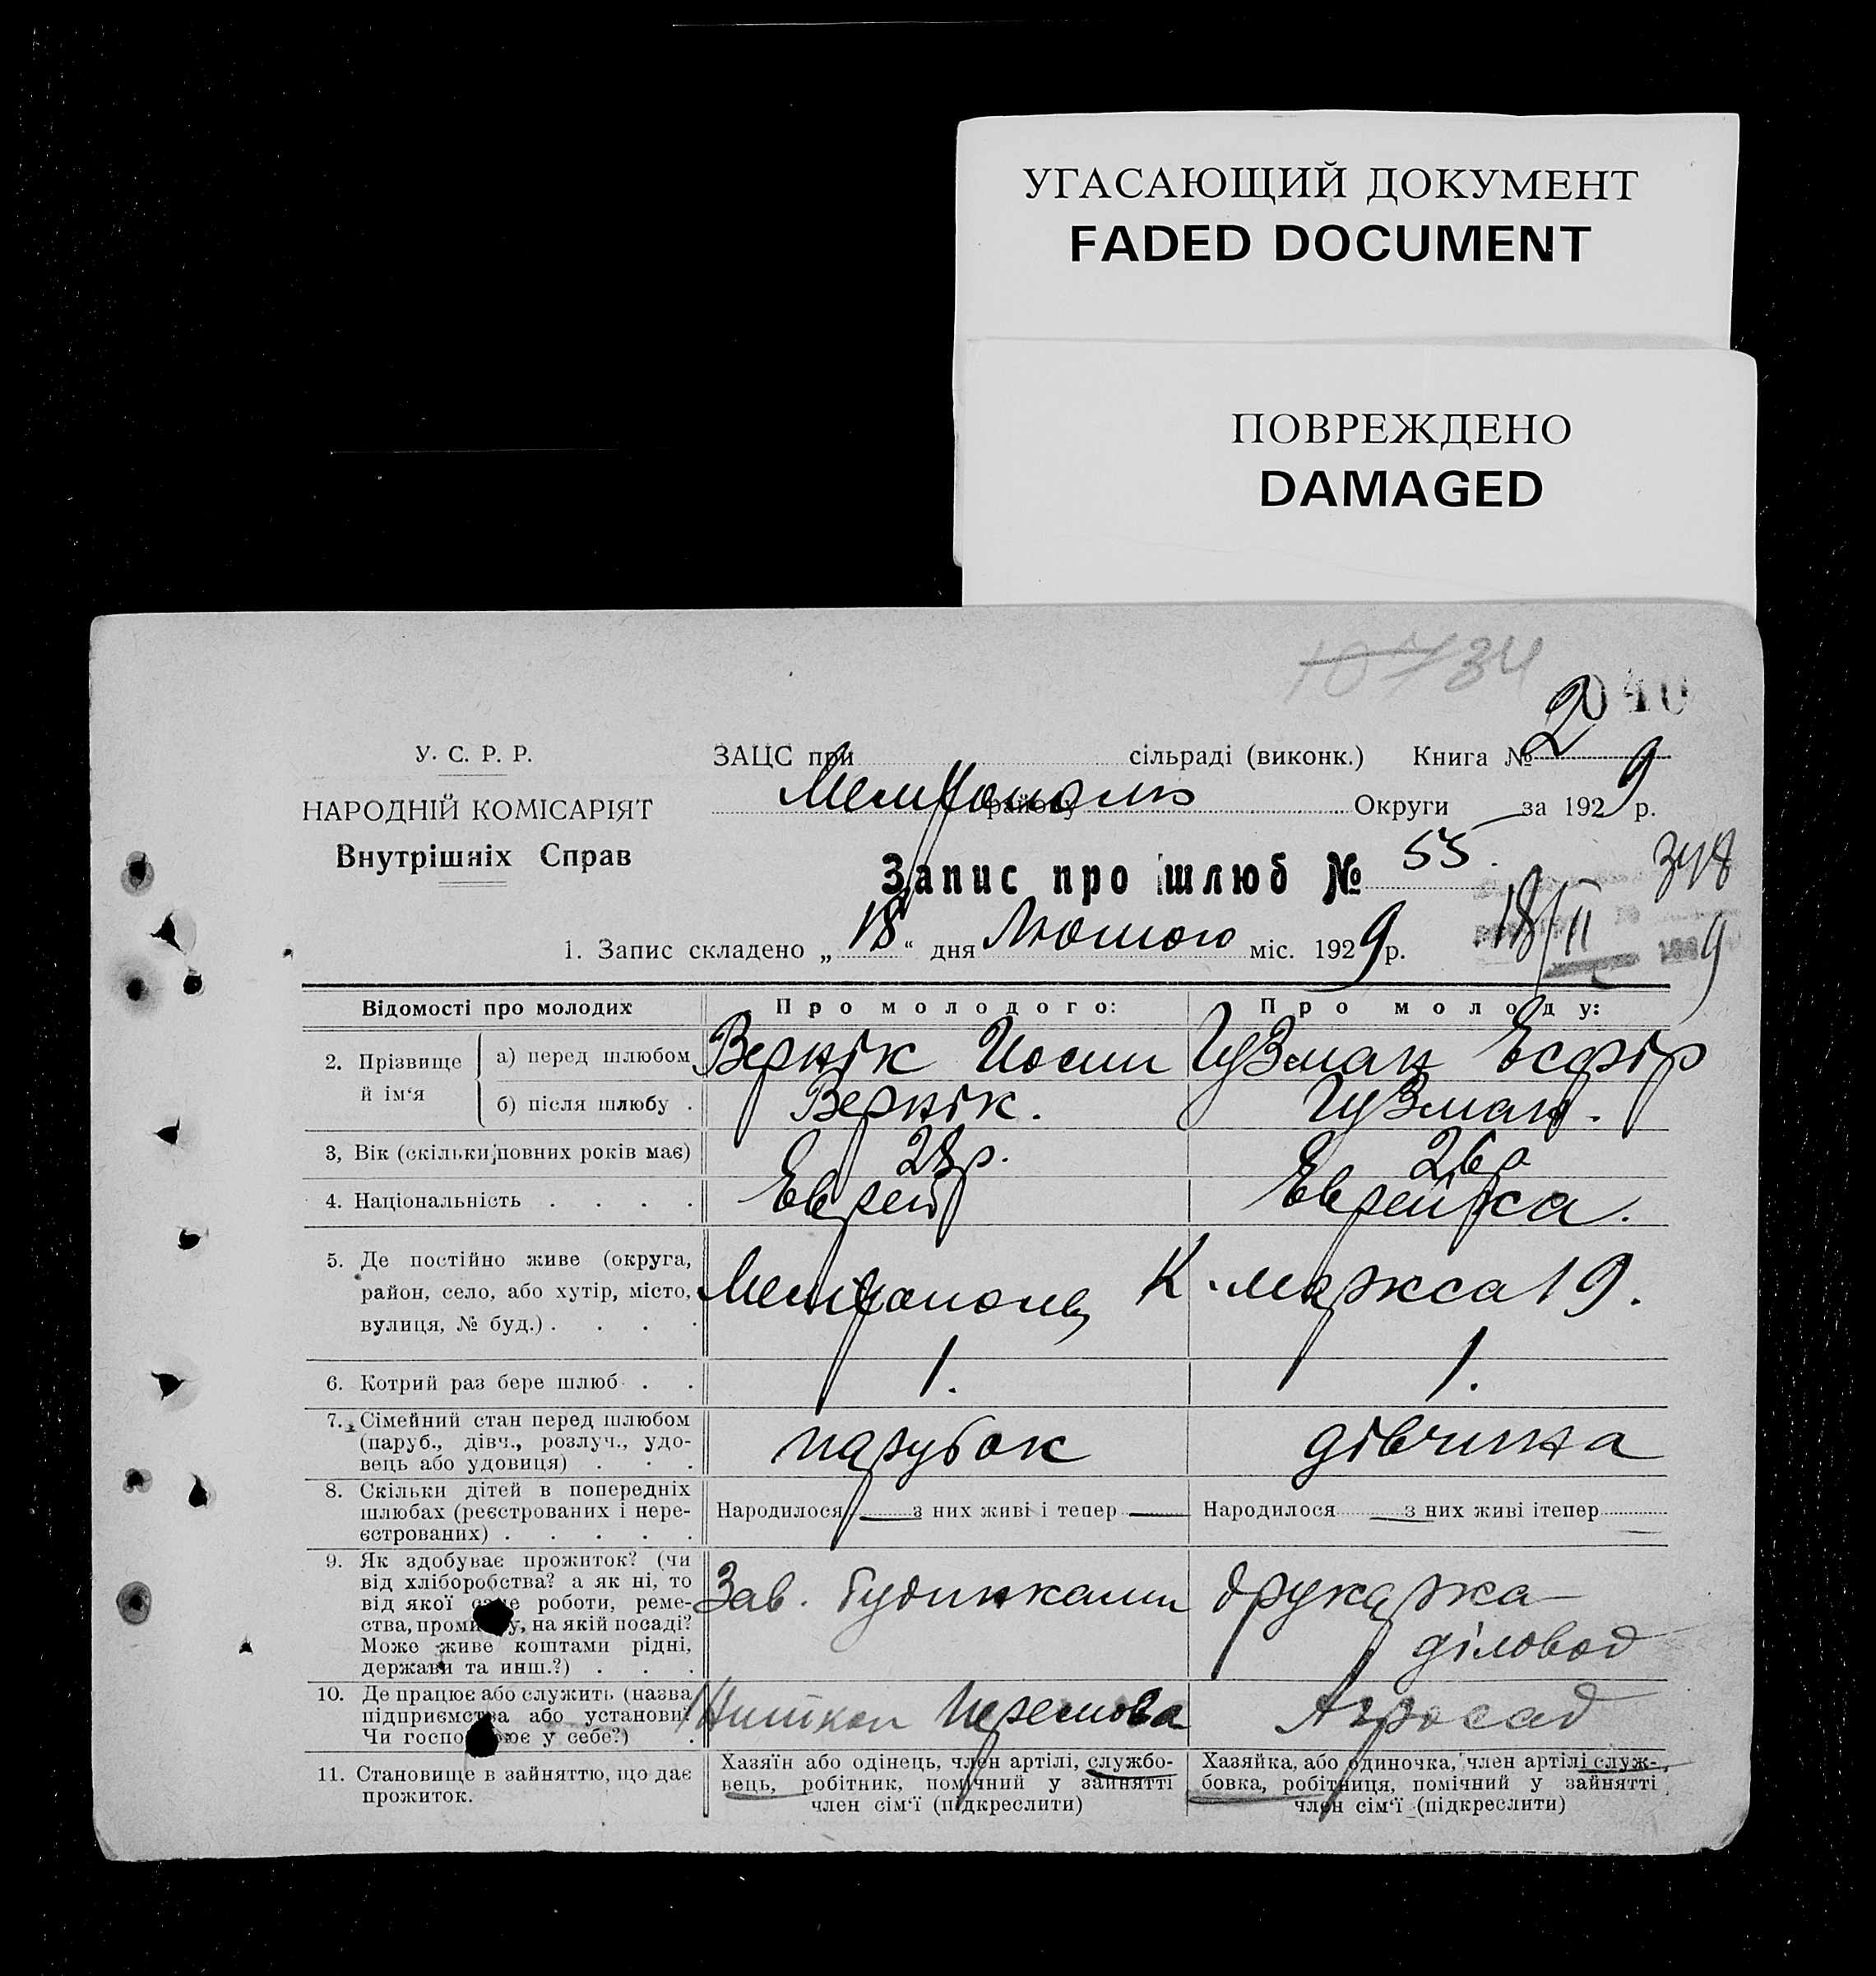 УГАСАЮЩИЙ ДОКУМЕНТ
FADED DOCUMENT
ПОВРЕЖДЕНО
DAMAGED
34
2
У. С. Р. Р.
ЗАЦС при сільраді (виконк.) Книга № 2
НАРОДНІЙ КОМІСАРІЯТ
Мелітополь району Округи за 1929 р.
Внутрішніх Справ
Запис про шлюб № 55.
348
1. Запис складено „18“ дня Лютого міс. 1929 р.
18/II 9
Відомості про молодих
Про молодого:
Про молоду:
2. Прізвище й ім‘я
а) перед шлюбом
Вернік Иосип
Гузман Есфір
б) після шлюбу .
Вернік.
Гузман.
3, Вік (скільки повних років має)
28р.
26р
4. Національність . . . .
Еврей
Еврейка.
5. Де постійно живе (округа,
район, село, або хутір, місто,
вулиця, № буд.) . . . .
Мелітополь К. Маркса 19.
6. Котрий раз бере шлюб . .
1.
1.
7. Сімейний стан перед шлюбом
(паруб., дівч., розлуч., удо-
вець або удовиця) . . .
парубок
дівчина
8. Скільки дітей в попередніх
шлюбах (реєстрованих і нере-
єстрованих) . . . . .
Народилося — з них живі і тепер —
Народилося — з них живі ітепер —
9. Як здобуває прожиток? (чи
від хліборобства? а як ні, то
від якої роботи, реме-
ства, на якій посаді?
Може живе коштами рідні,
держави та инш.?) . . .
Зав. будинками
друкарка
діловод
10. Де працює або служить (назва
підприємства або установи?
Чи у себе?) .
Агросад
11. Становище в зайняттю, що дає
прожиток.
Хазяїн або одінець, член артілі, службо-
вець, робітник, помічний у зайнятті
член сім‘ї (підкреслити)
Хазяйка, або одиночка, член артілі служ-
бовка, робітниця, помічний у зайнятті
член сім‘ї (підкреслити)